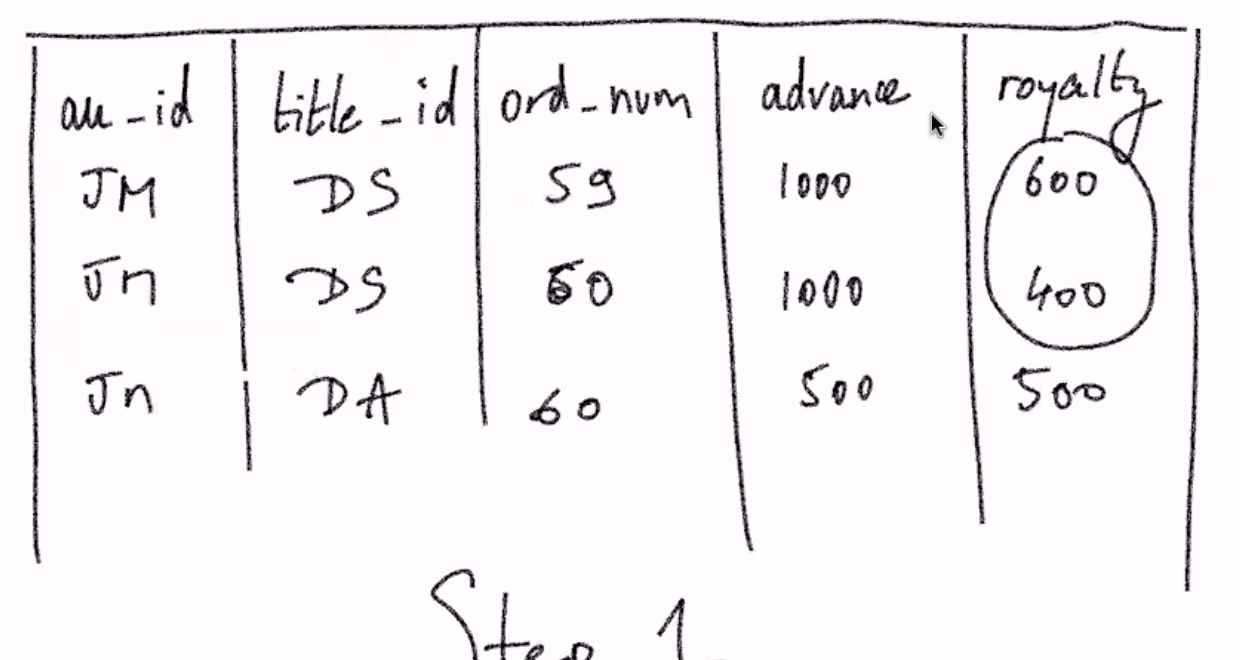 au_id title_id ord_num advance royalty
JM DS 59 1000 600
Jn DS 60 1000 400
Jn DA 60 500 500
Step 1